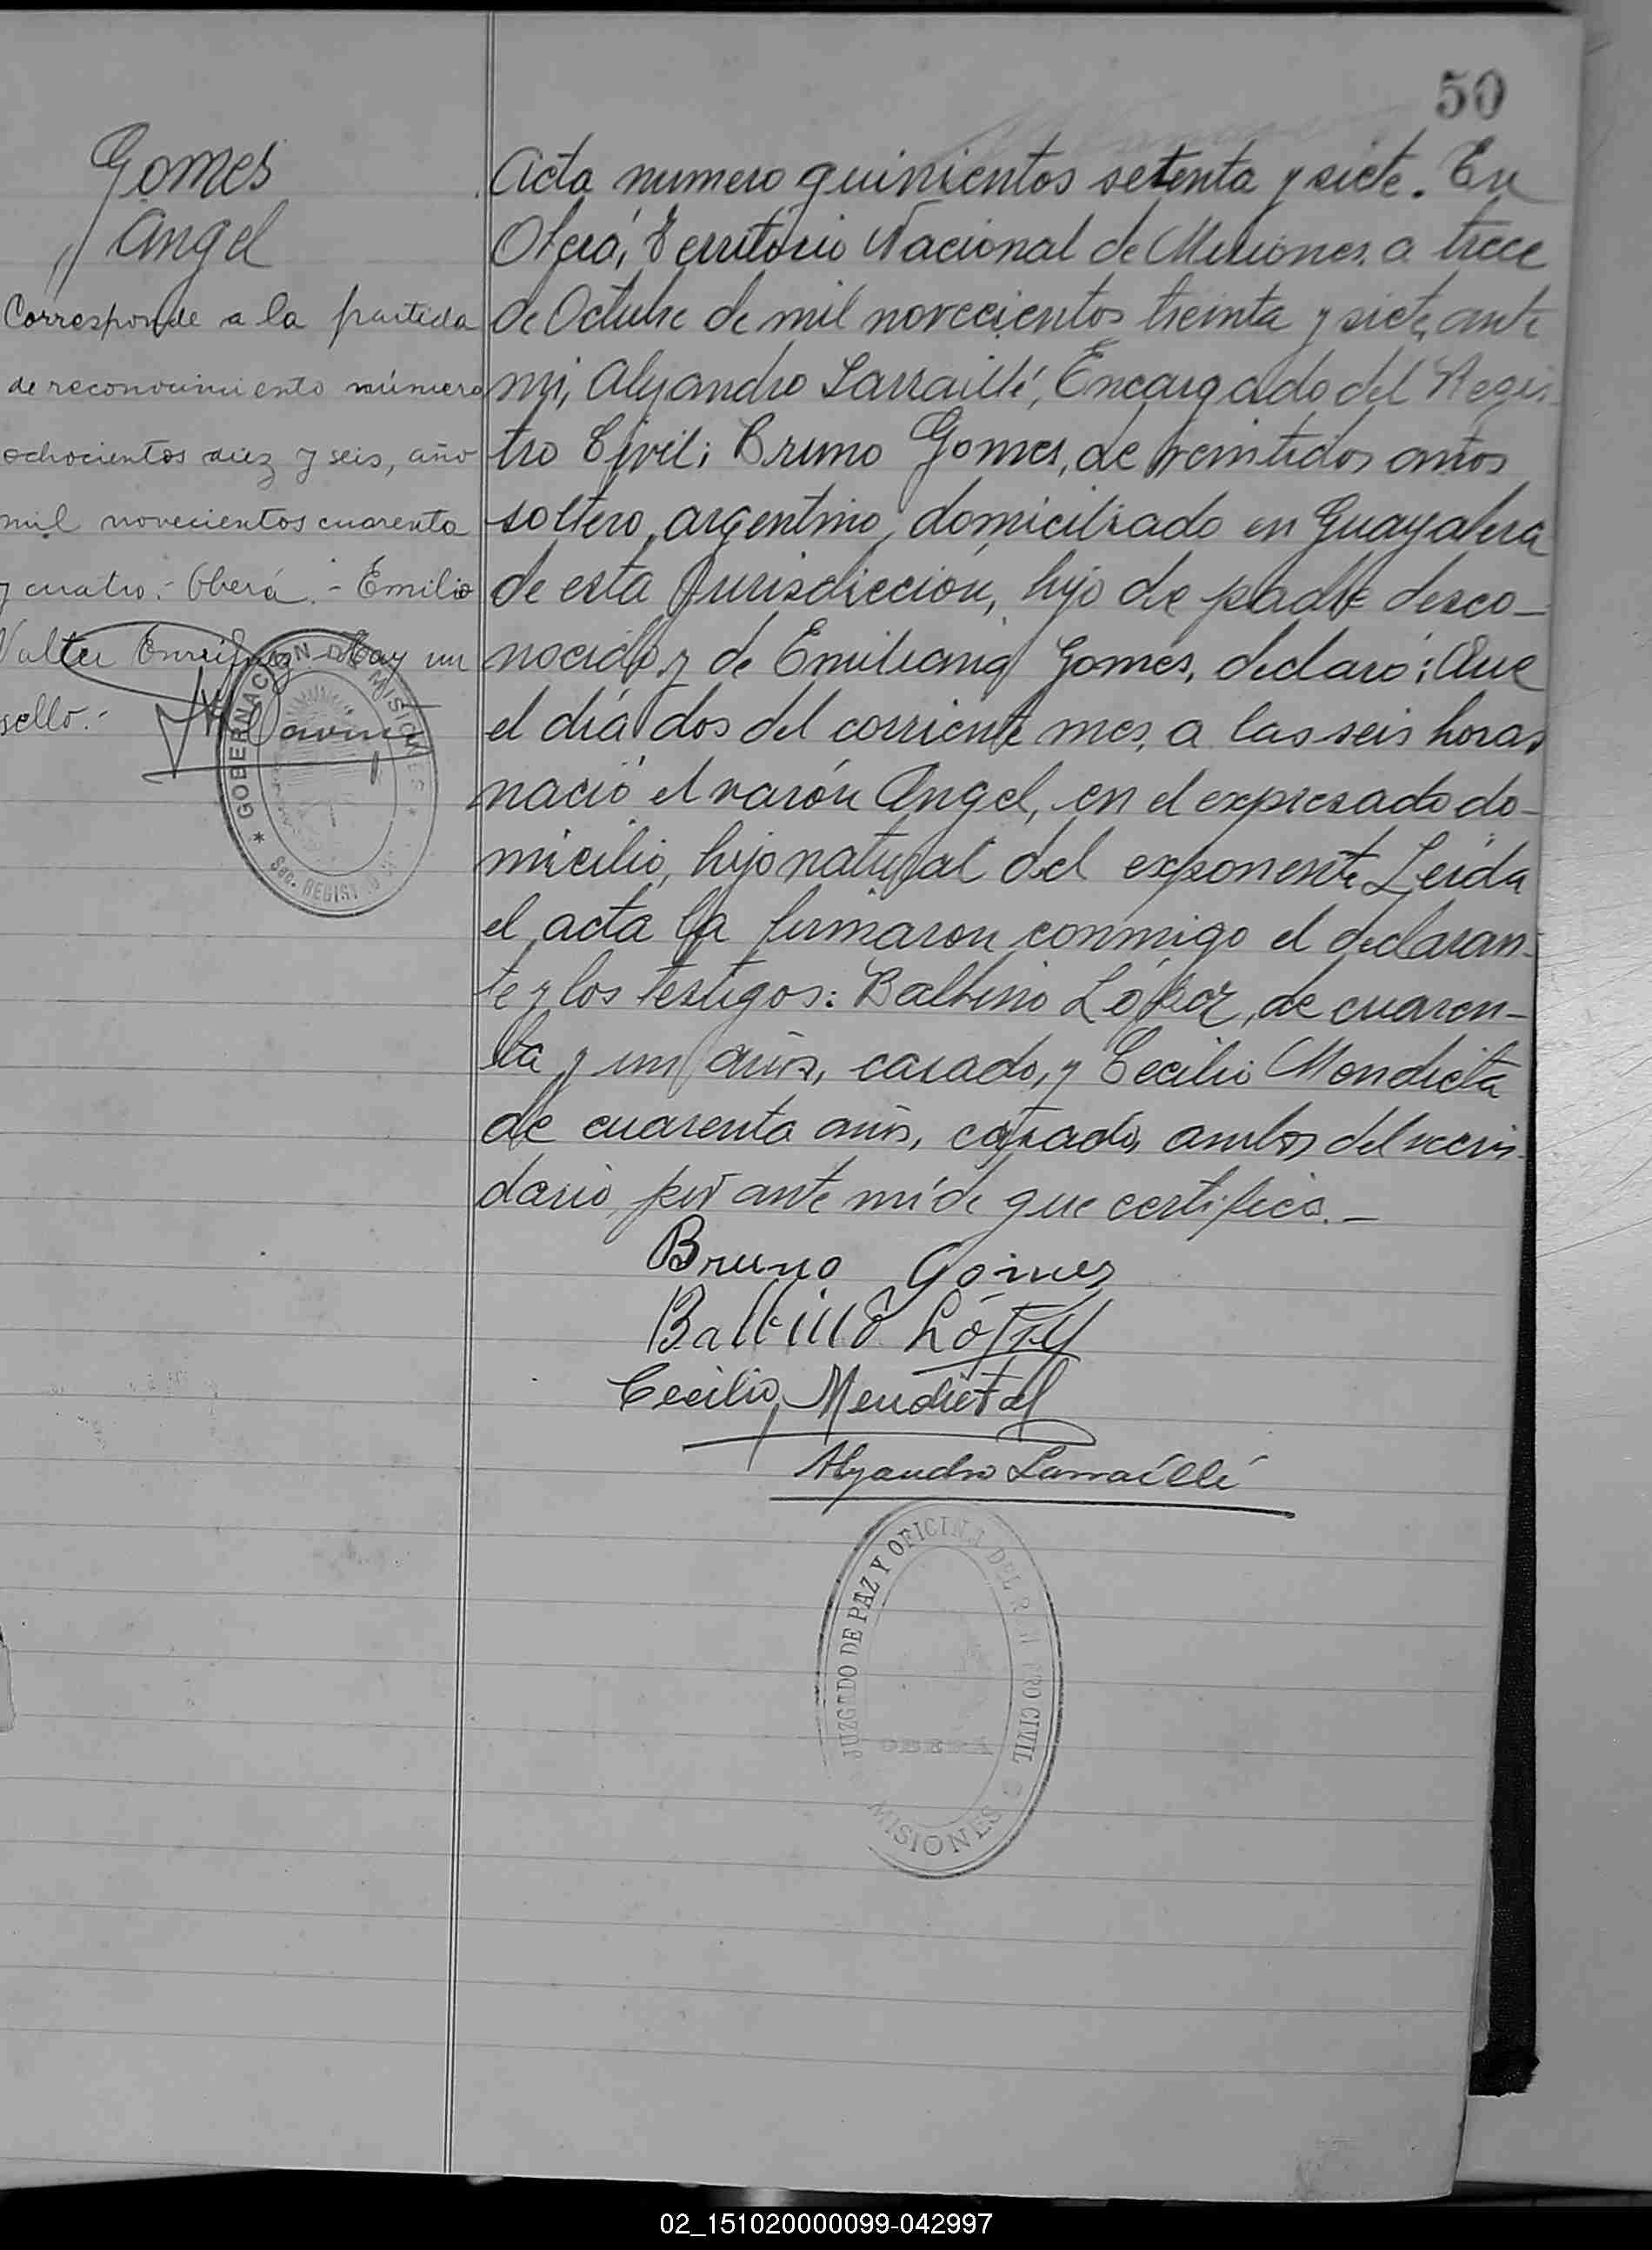 50
Gomes
Angel
Corresponde a la partida
de reconocimiento número
ochocientos diez y seis, año
mil novecientos cuarenta
y cuatro.- Oberá.- Emilio
Valter Enriquez - Hay un
sello.-
GOBERNACION DE MISIONES
Sec. REGIST
Acta numero quinientos setenta y siete. En
Oberá, Territorio Nacional de Misiones, a trece
de Octubre de mil novecientos treinta y siete, ante
mi, Alejandro Larraillé, Encargado del Regis-
tro Civil; Bruno Gomes, de veintidos años
soltero, argentino, domiciliado en Guayabera
de esta Jurisdiccion, hijo de padre desco-
nocido y de Emiliana Gomes, declaró: Que
el día dos del corriente mes, a las seis horas
nació el varón Angel, en el expresado do-
micilio, hijo natural del exponente. Leida
el acta la firmaron conmigo el declaran-
te y los testigos: Balbino López, de cuaren-
ta y un años, casado, y Cecilio Mendieta
de cuarenta años, casado, ambos del vecin-
dario, por ante mí de que certifico.-
Bruno Gomes
Balbino López
Cecilio Mendieta
Alejandro Larraillé
JUZGADO DE PAZ Y OFICINA DEL REGISTRO CIVIL
OBERÁ
MISIONES
02_151020000099-042997